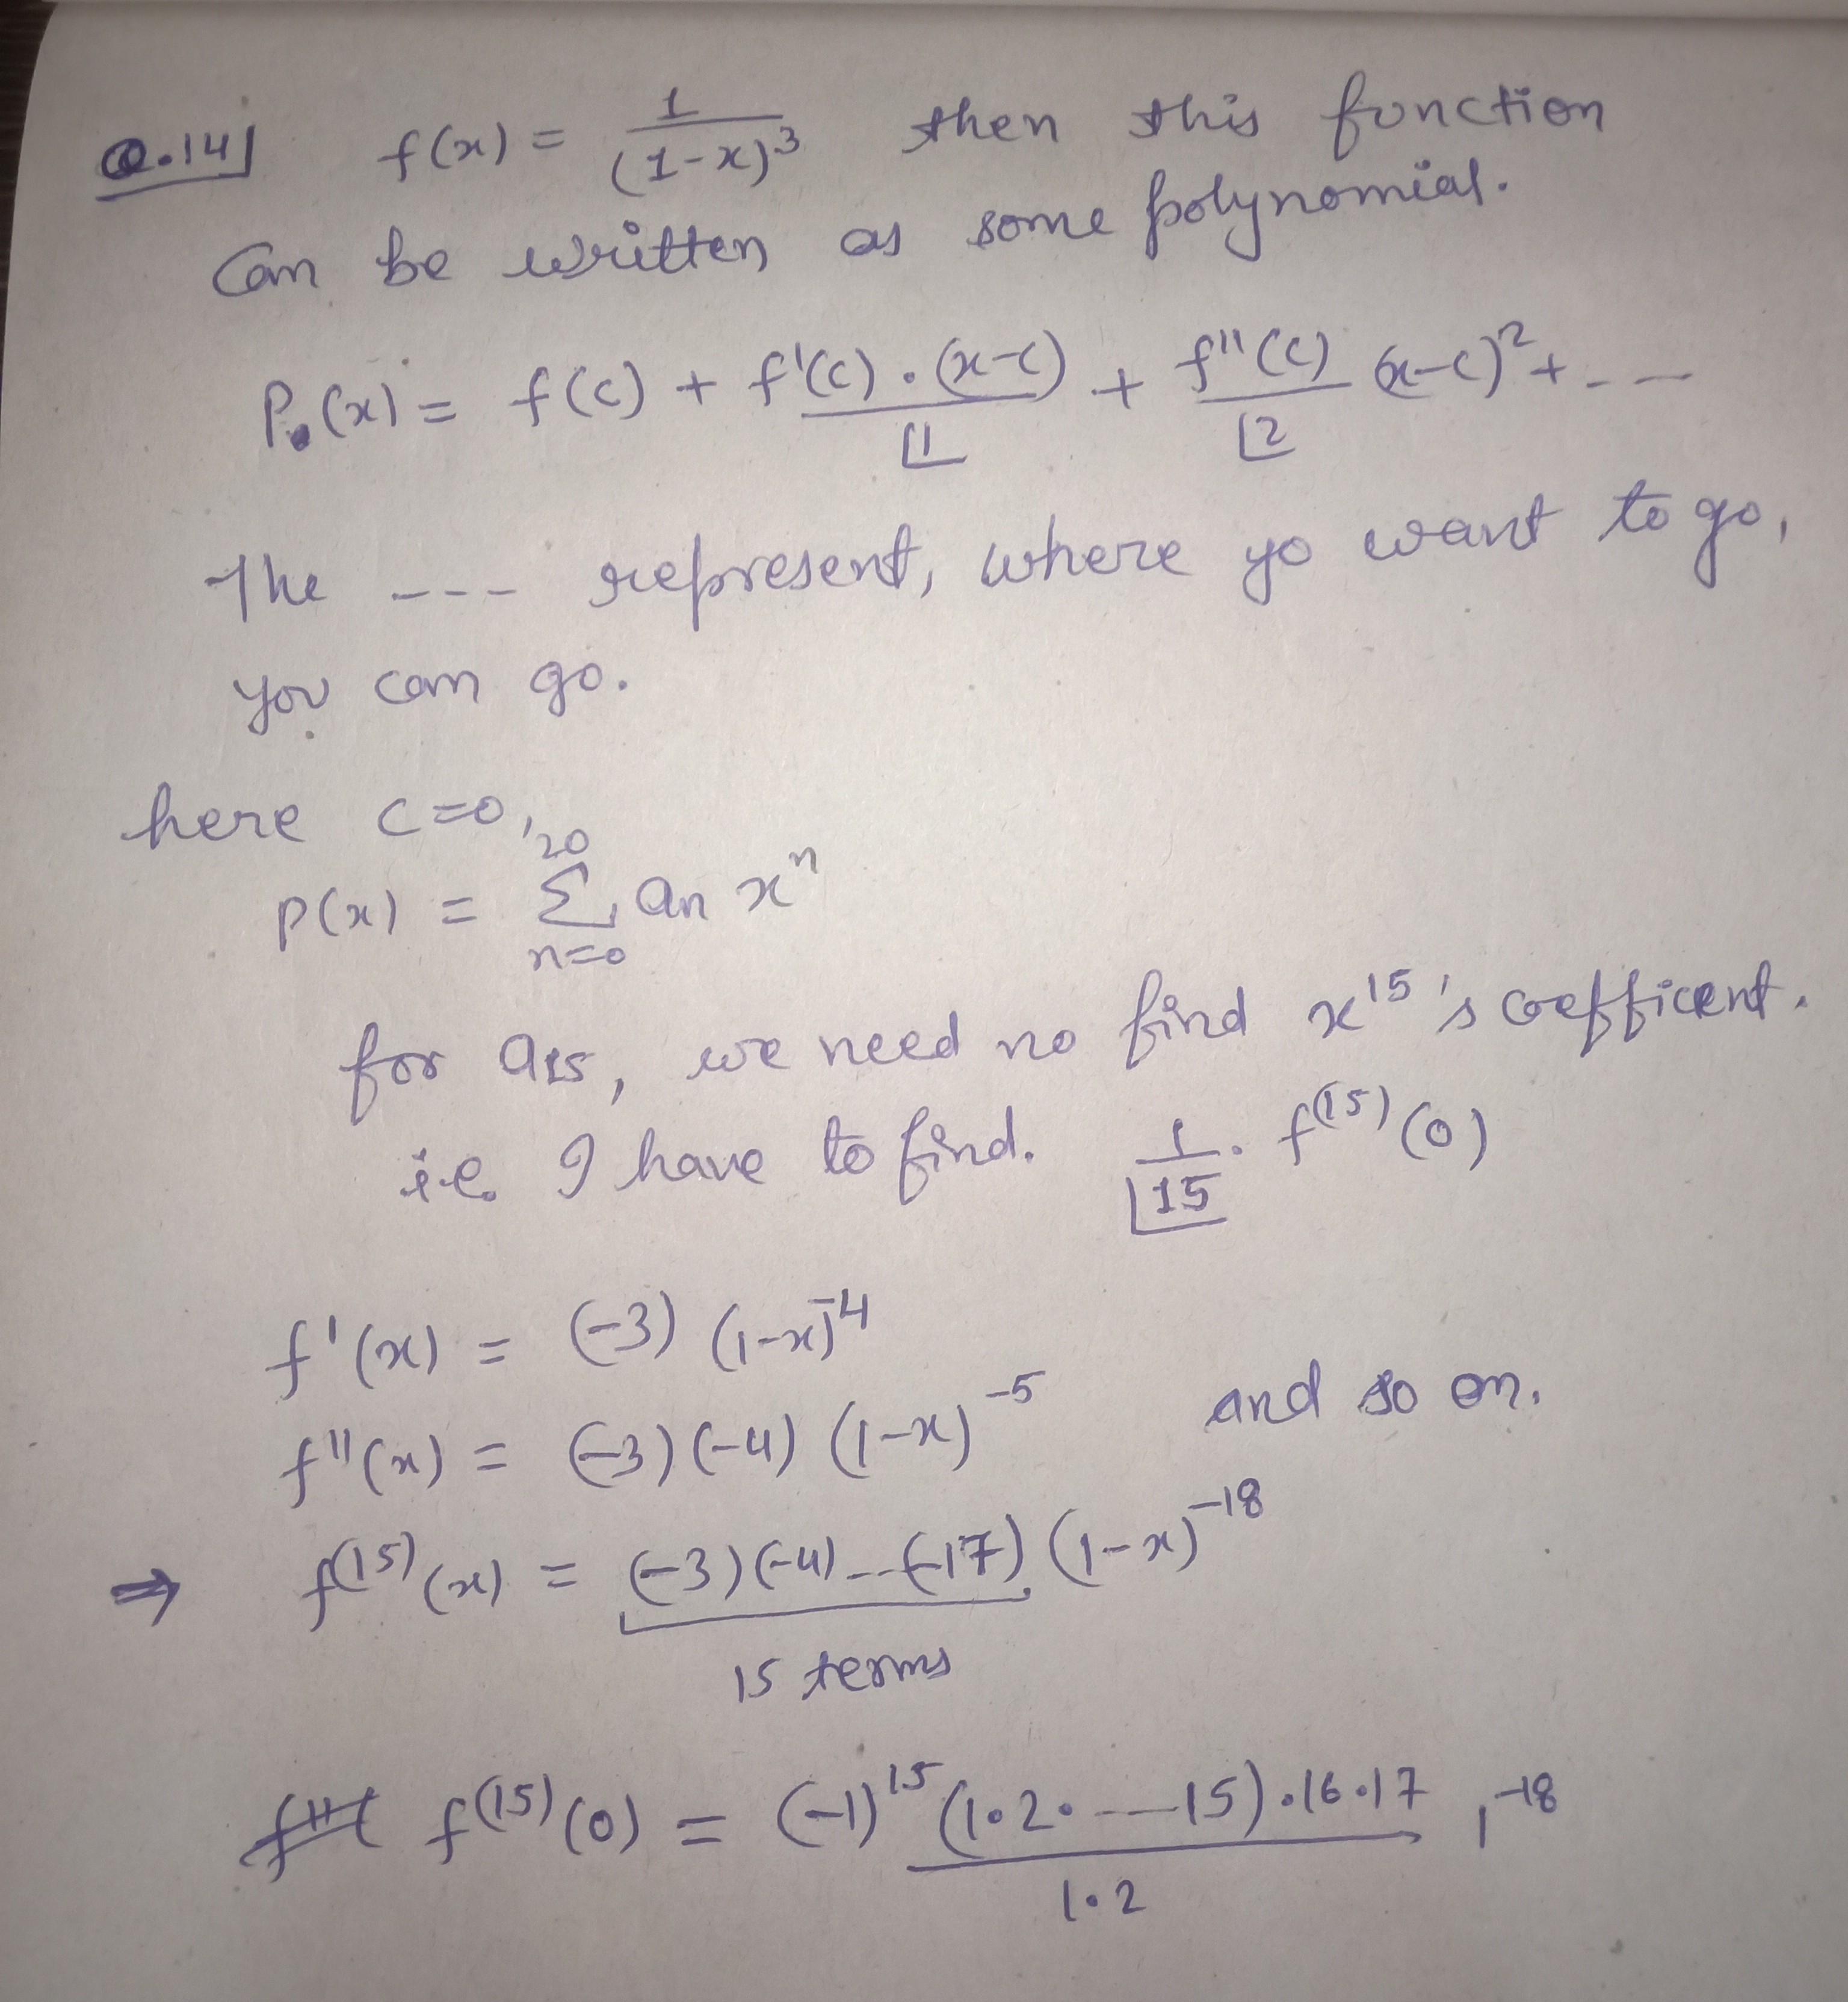 Q.14] f(x) = 1/(1-x)³ then this function
Can be written as some polynomial.
P.(x) = f(c) + f'(c).(x-c)/⌊1 + f''(c)/⌊2 (x-c)² + - - -
The - - - represent, where yo want to go,
you can go.
here c=0,
P(x) = Σ_{n=0}^{20} an xⁿ
for a15, we need no find x¹⁵'s coefficent.
i.e. I have to find. 1/⌊15 . f⁽¹⁵⁾(0)
f'(x) = (-3) (1-x)⁻⁴
f''(x) = (-3)(-4) (1-x)⁻⁵ and so on.
⇒ f⁽¹⁵⁾(x) = (-3)(-4)---(-17) (1-x)⁻¹⁸
15 terms
f⁽¹⁵⁾(0) = (-1)¹⁵ (1.2. --- 15).16.17/1.2 1⁻¹⁸